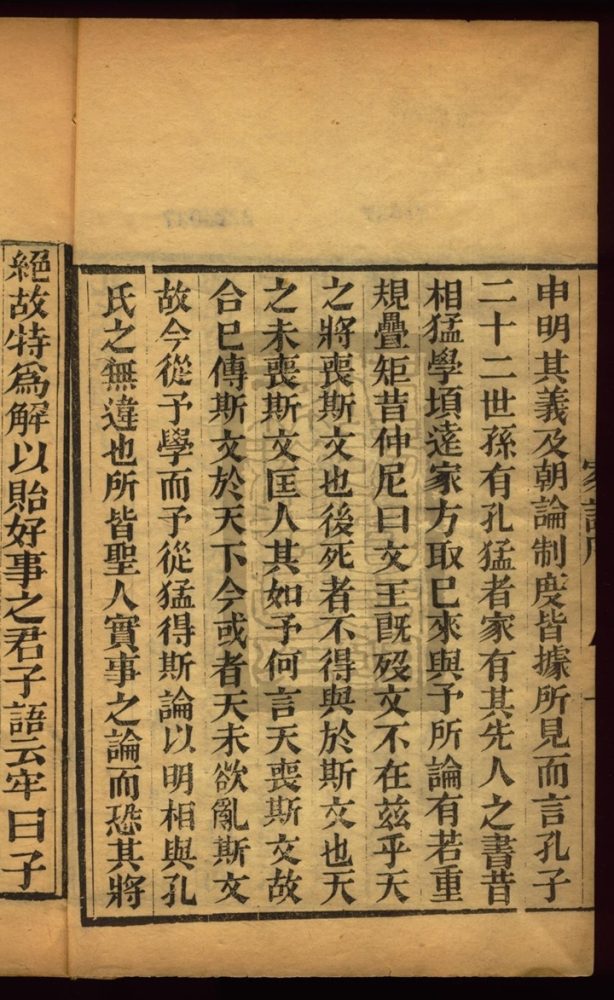 申明其義及朝論制度皆據所見而言孔子
二十二世孫有孔猛者家有其先人之書昔
相猛學頃達家方取已來與予所論有若重
規疊矩昔仲尼曰文王旣歿文不在茲乎天
之將喪斯文也後死者不得與於斯文也天
之未喪斯文匡人其如予何言天喪斯文故
合已傳斯文於天下今或者天未欲亂斯文
故今從予學而予從猛得斯論以明相與孔
氏之無違也所皆聖人實事之論而恐其將
絕故特爲解以貽好事之君子語云牢曰子